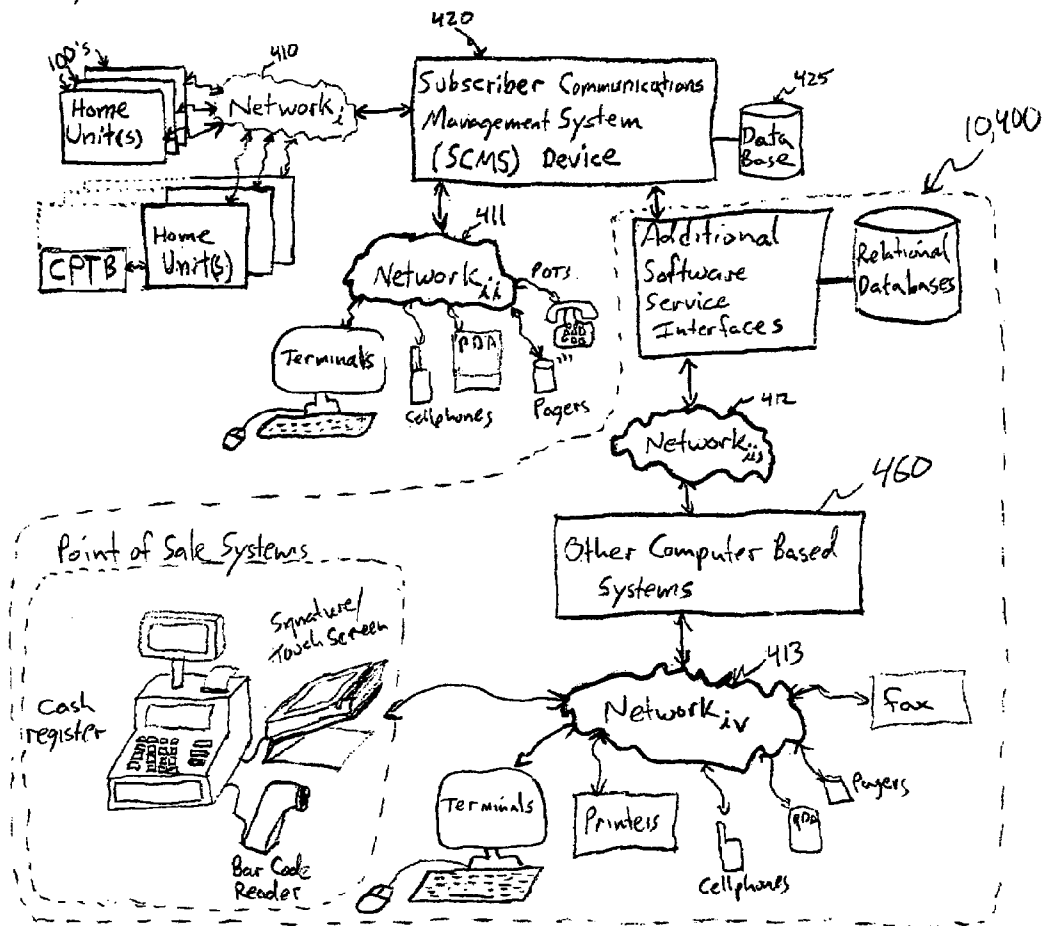 420
100's
410
425
10,400
Home
Unit(s)
Network i
Subscriber Communications
Management System
(SCMS) Device
Data
Base
Home
Unit(s)
CPTB
411
Network ii
POTS
Terminals
Cellphones
PDA
Pagers
Additional
Software
Service
Interfaces
Relational
Databases
412
Network iii
460
Other Computer Based
Systems
Point of Sale Systems
Signature/
Touch Screen
Cash
register
Bar Code
Reader
413
Network iv
Fax
Terminals
Printers
Cellphones
PDA
Pagers